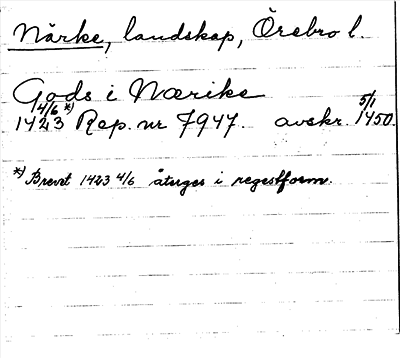 Närke, landskap, Örebro l.
Gods i Nærike
4/6 *) 5/1
1423 Rep. nr 7947. avskr. 1450.
*) Brevet 1423 4/6 återges i regestform.